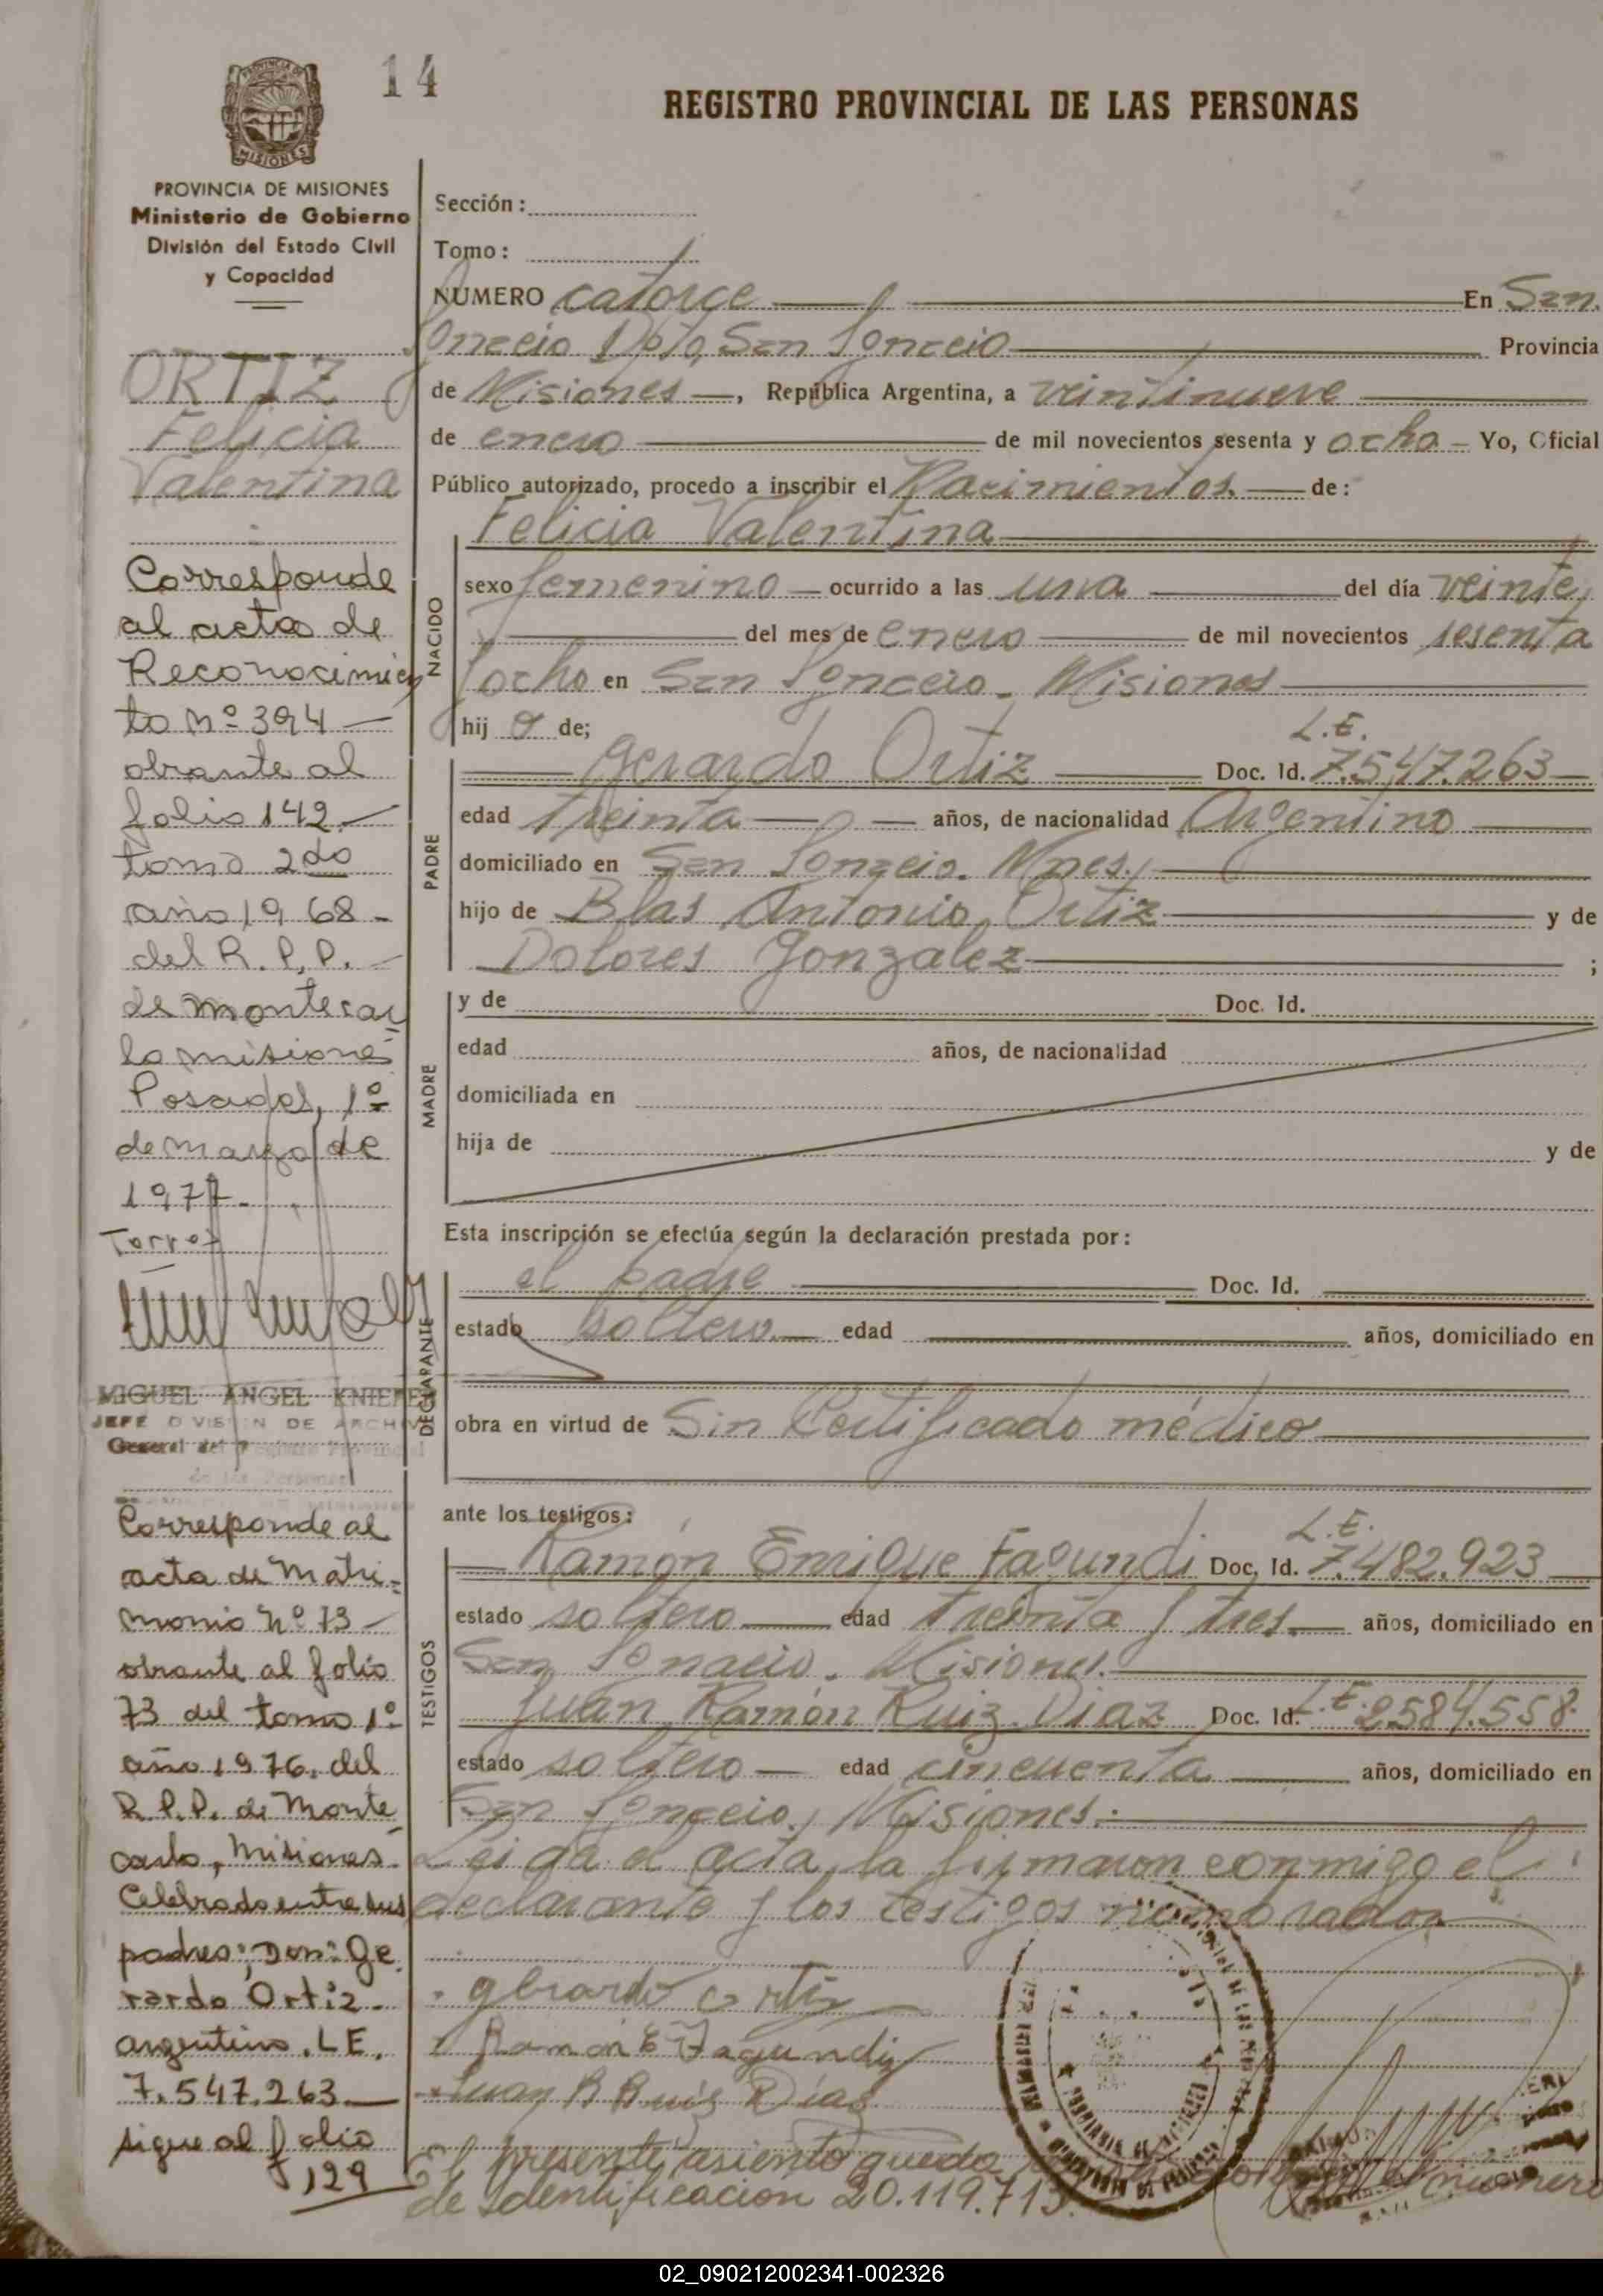 14
REGISTRO PROVINCIAL DE LAS PERSONAS
MISIONES
PROVINCIA DE MISIONES
Ministerio de Gobierno
División del Estado Civil
y Capacidad
ORTIZ
Felicia
Valentina
Corresponde
al acta de
Reconocimien
to nº 394
obrante al
folio 142
tomo 2do
año 1968
del R.P.P.
de Montecar
lo misiones
Posadas, 1º
de marzo de
1977
Torres
MIGUEL ANGEL KNIEFEL
JEFE DIVISION DE ARCHIVO
General del Registro Provincial
de las Personas
Corresponde al
acta de Matri-
monio Nº 73
obrante al folio
73 del tomo 1º
año 1976, del
R.P.P. de Monte
carlo, Misiones
Celebrado entre sus
padres; Don: Ge
rardo Ortiz-
argentino. L.E.
7.547.263
sigue al folio
129
Sección:
Tomo:
NUMERO catorce En San
Ignacio Dpto, San Ignacio Provincia
de Misiones, República Argentina, a veintinueve
de enero de mil novecientos sesenta y ocho Yo, Oficial
Público autorizado, procedo a inscribir el Nacimientos. de:
Felicia Valentina
NACIDO
sexo femenino ocurrido a las una del día veinte,
del mes de enero de mil novecientos sesenta
y ocho en San Ignacio. Misiones
hij a de;
PADRE
Gerardo Ortiz Doc. Id. L.E. 7.547.263
edad treinta años, de nacionalidad Argentino
domiciliado en San Ignacio. Mnes.
hijo de Blas Antonio Ortiz y de
Dolores Gonzalez ;
MADRE
y de Doc. Id.
edad años, de nacionalidad
domiciliada en
hija de y de
Esta inscripción se efectúa según la declaración prestada por:
DECLARANTE
el padre Doc. Id.
estado soltero edad años, domiciliado en
obra en virtud de Sin Certificado médico
ante los testigos:
TESTIGOS
Ramón Enrique Fagundi Doc. Id. L.E. 7.482.923
estado soltero edad treinta y tres años, domiciliado en
San Ignacio. Misiones.
Juan Ramón Ruiz Diaz Doc. Id. L.E. 2584.558
estado soltero edad cincuenta años, domiciliado en
San Ignacio, Misiones.
Leida el acta, la firmaron conmigo el
declarante y los testigos nombrados
gerardo ortiz
Ramon E Fagundiz
Juan R Ruiz Diaz
El presente asiento queda
numero
de identificacion 20.119.713.
02_090212002341-002326